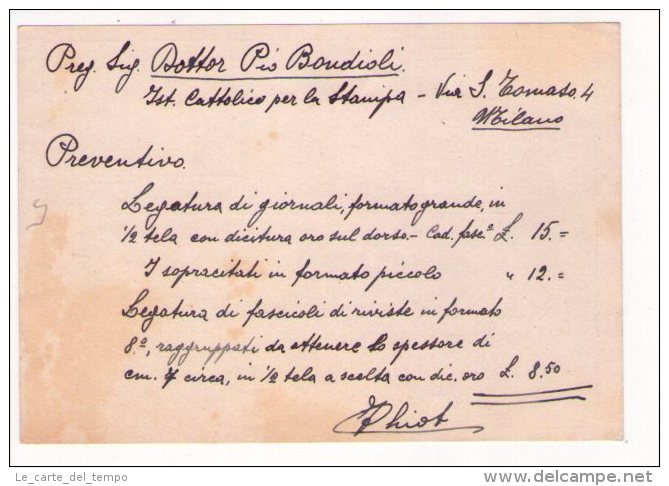 Preg. Sig. Dottor Pio Bondioli.
Ist. Cattolico per la Stampa – Via S. Tomaso. 4
Milano
Preventivo.
Legatura di giornali, formato grande, in
1/2 tela con dicitura oro sul dorso.– Cad. fasc.º £. 15.=
I sopracitati in formato piccolo " 12.=
Legatura di fascicoli di riviste in formato
8º, raggruppati da ottenere lo spessore di
cm. 7 circa, in 1/2 tela a scelta con dic. oro £. 8.50
Le_carte_del_tempo
delcampe.net